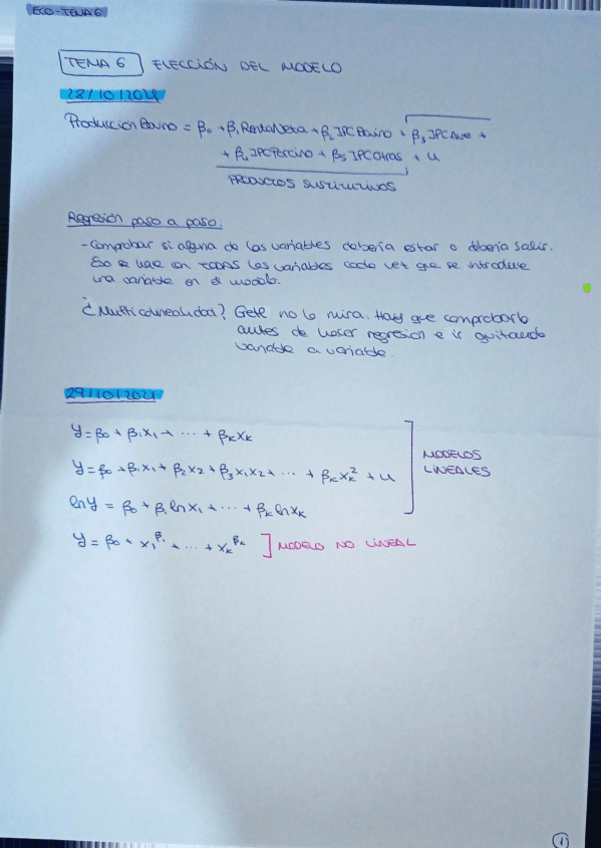 ECO-TEMA 6
TEMA 6 ELECCIÓN DEL MODELO
28/10/2021
Producción Bovino = β₀ + β₁RentaNeta + β₂IPCBovino + β₃IPCAve +
+ β₄IPCPorcino + β₅IPCOtras + u
PRODUCTOS SUSTITUTIVOS
Regresión paso a paso:
- Comprobar si alguna de las variables debería estar o debería salir.
Eso se hace con TODAS las variables cada vez que se introduce
una variable en el modelo.
¿Multicolinealidad? Gretl no lo mira. Hay que comprobarlo
antes de hacer regresión e ir quitando
variable a variable.
29/10/2021
y = β₀ + β₁x₁ + ... + βₖxₖ
y = β₀ + β₁x₁ + β₂x₂ + β₃x₁x₂ + ... + βₖxₖ² + u
ln y = β₀ + β₁ ln x₁ + ... + βₖ ln xₖ
MODELOS
LINEALES
y = β₀ + x₁^β₁ + ... + xₖ^βₖ ] MODELO NO LINEAL
1